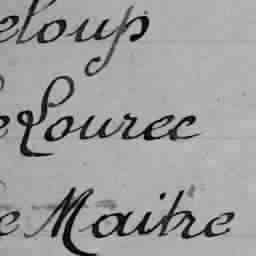 eloup
e Lourec
e Maitre